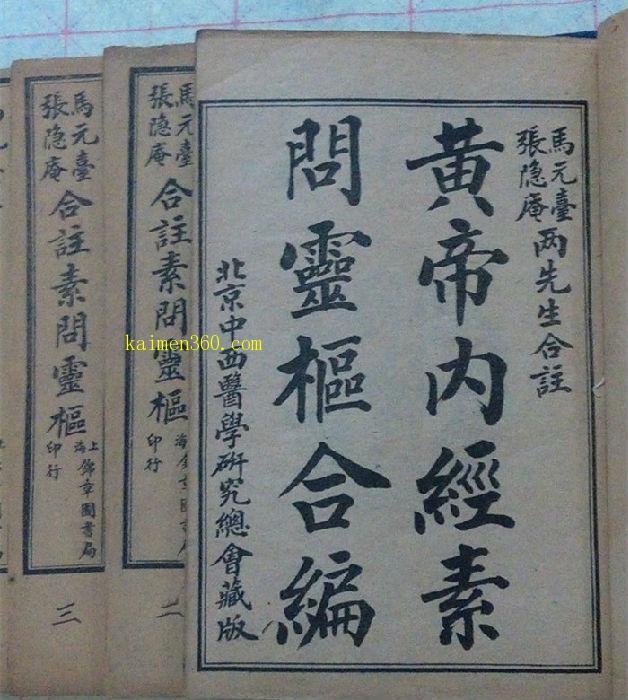 馬元臺
張隐庵
两先生合註
黄帝内經素
問靈樞合編
北京中西醫學研究總會藏版
馬元臺
張隐庵
合註素問靈樞
印行
二
馬元臺
張隐庵
合註素問靈樞
上海錦章圖書局
印行
三
kaimen360.com